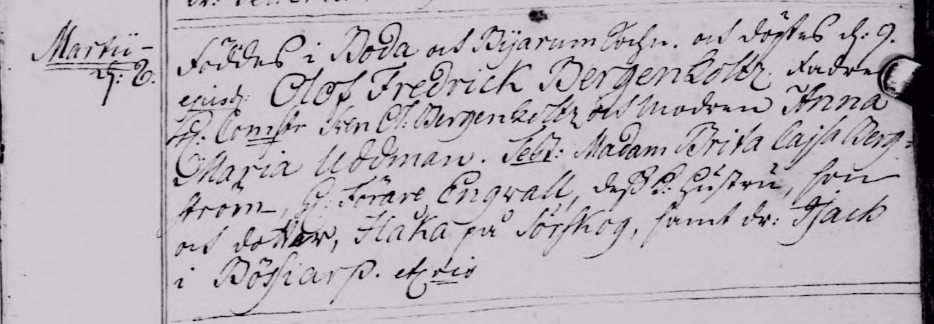 Martii
d: 8. föddes i Boda och Byarum Sochn. och döptes d: 9.
ejusd: Olof Fredrick Bergenholtz. Fadren
H: Comstr Sven Ol. Bergenholtz och Modren Anna
Maria Uddman. Test: Madam Brita Cajsa Berg=
ström, H: Förare Engvall, dess k: hustru, son
och dotter, Håka på Sörskog, samt dr: Isack
i Bössiarp.